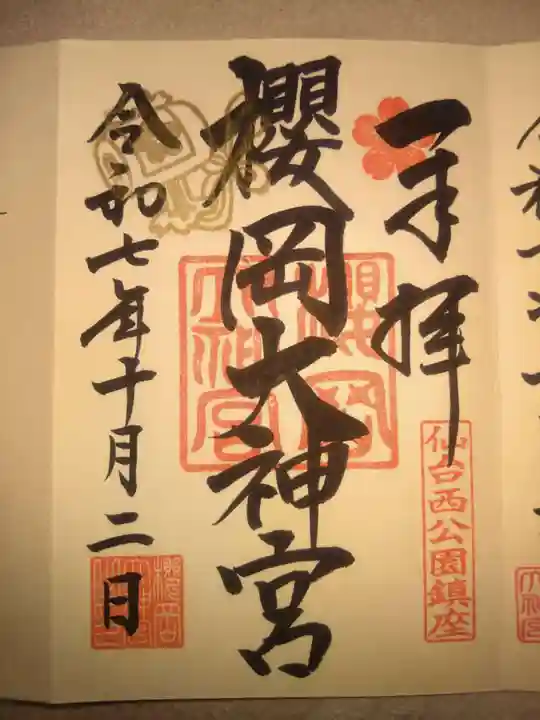 奉拝
仙台西公園鎮座
櫻岡大神宮
櫻岡大神宮
令和七年十月二日